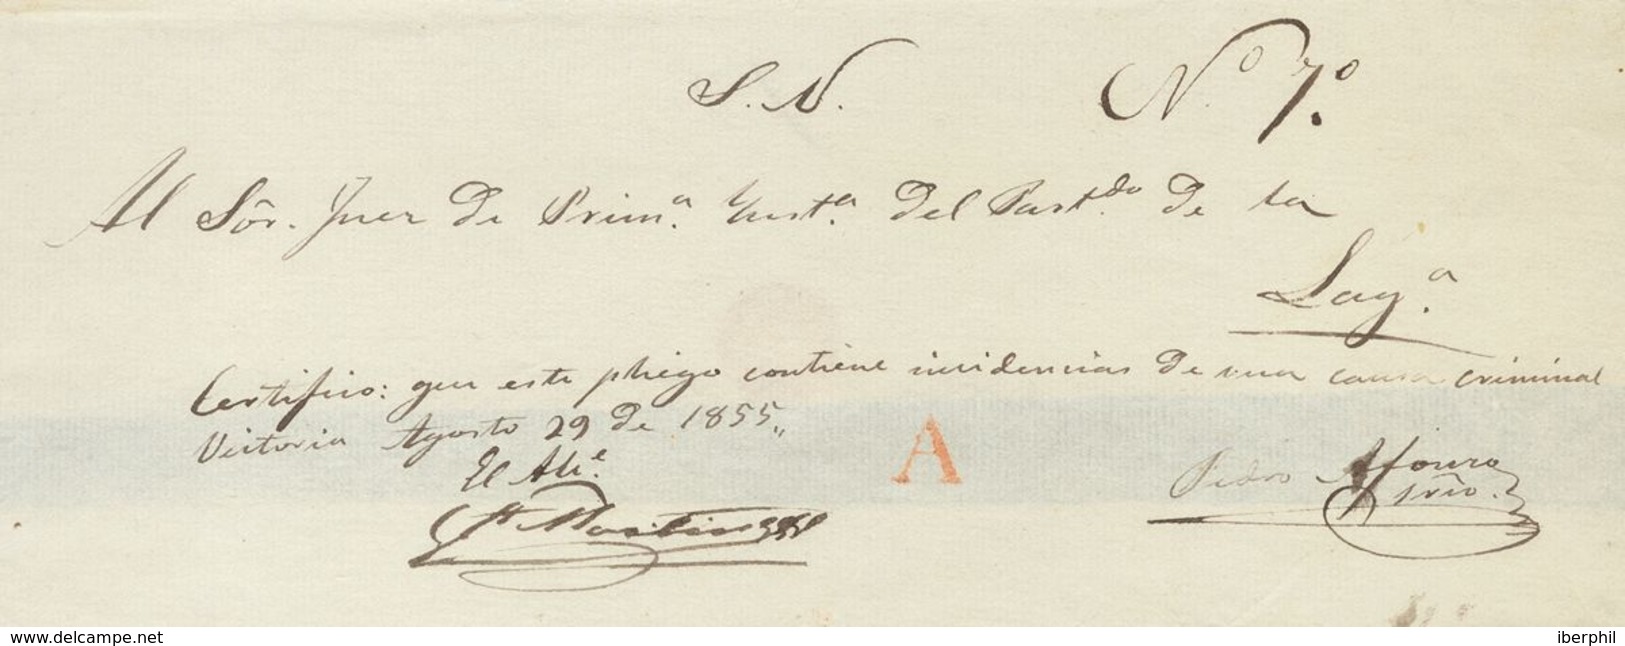 S. N. Nº 7º
Al Sôr. Juez de Primª Ynstª del Partdo de la
Lagª
Certifico: que este pliego contiene incidencias de una causa criminal
Victoria Agosto 29 de 1855
El Alcе
A
Pedro
Martinez
srio.
www.delcampe.net
iberphil